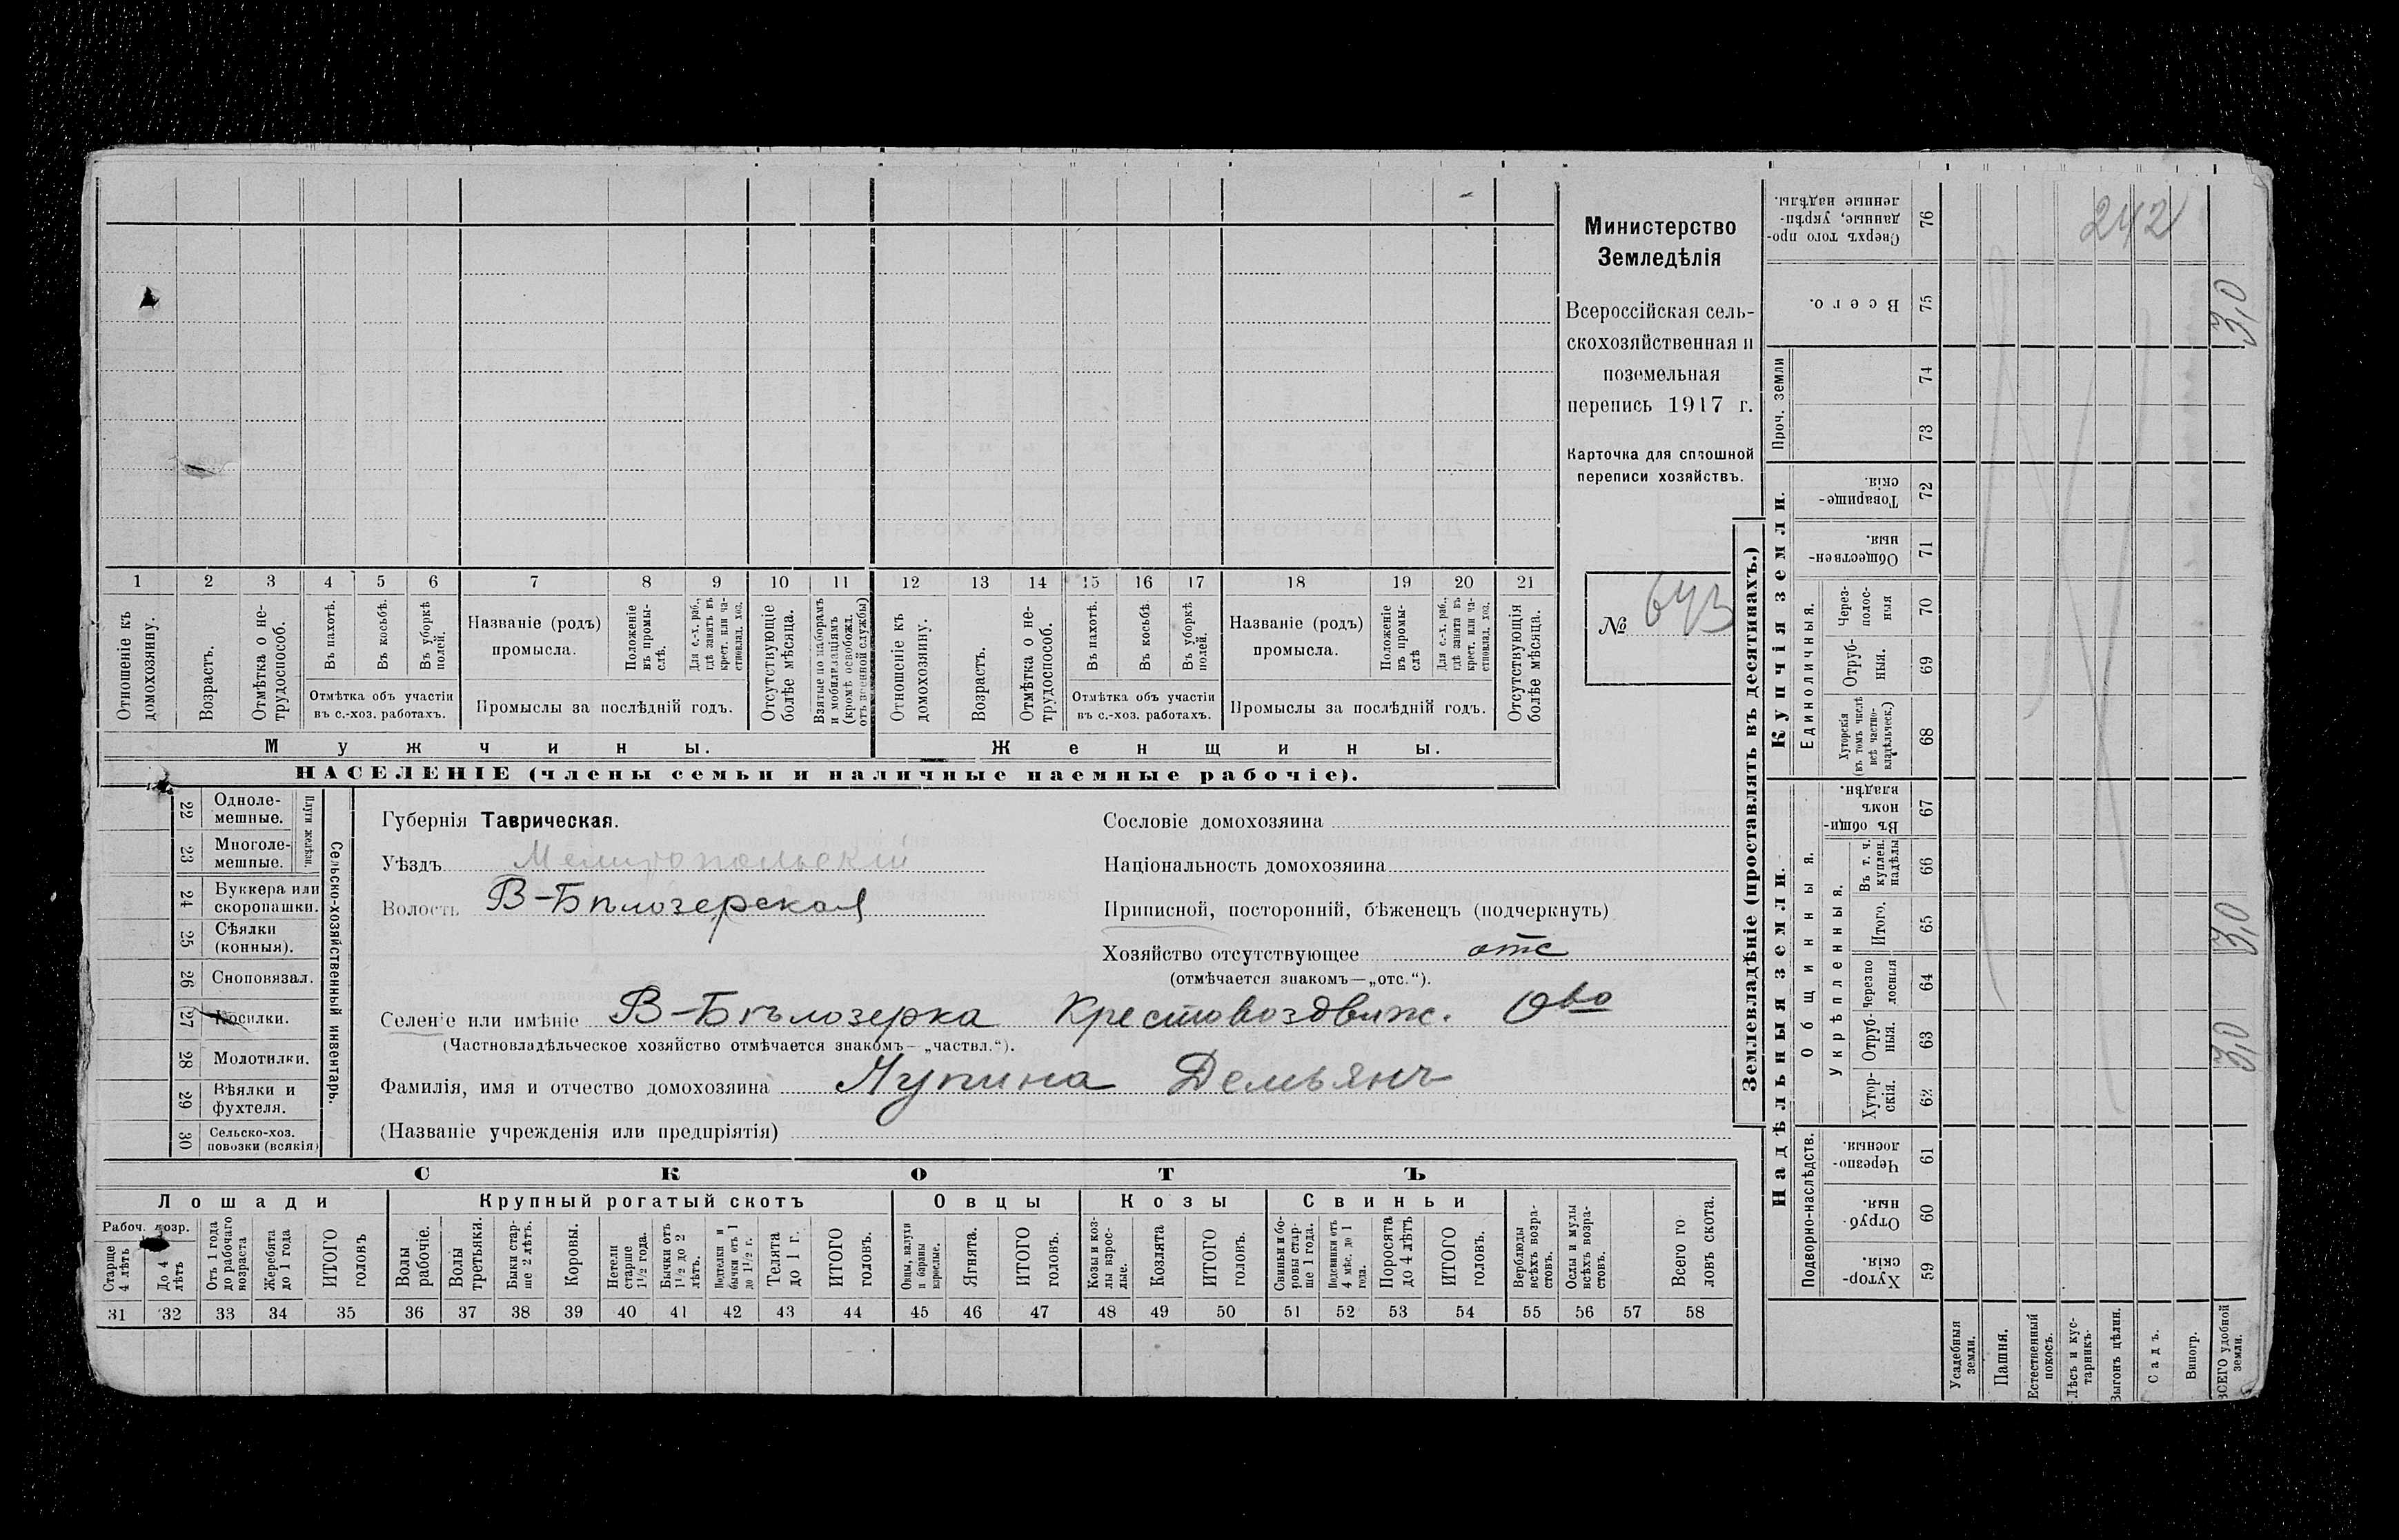 Министерство
Земледѣлія
Всероссійская сель-
скохозяйственная и
поземельная
перепись 1917 г.
Карточка для сплошной
переписи хозяйствъ.
№ 643
1 2 3 4 5 6 7 8 9 10 11 12 13 14 15 16 17 18 19 20 21
Отношеніе къ домохозяину.
Возрастъ.
Отмѣтка о не-трудоспособ.
Въ пахотѣ.
Въ косьбѣ.
Въ уборкѣ полей.
Отмѣтка объ участіи
въ с.-хоз. работахъ.
Названіе (родъ)
промысла.
Положеніе въ промы-слѣ.
Для с.-х. раб., гдѣ занятъ въ крест. или ча-стновлад. хоз.
Промыслы за послѣдній годъ.
Отсутствующіе болѣе мѣсяца.
Взятые по наборамъ и мобилизаціямъ (кромѣ освобожд. отъ военной службы)
Отношеніе къ домохозяину.
Возрастъ.
Отмѣтка о не-трудоспособ.
Въ пахотѣ.
Въ косьбѣ.
Въ уборкѣ полей.
Отмѣтка объ участіи
въ с.-хоз. работахъ.
Названіе (родъ)
промысла.
Положеніе въ промы-слѣ
Для с.-х. раб., гдѣ занята въ крест. или ча-стновлад. хоз.
Промыслы за послѣдній годъ.
Отсутствующія болѣе мѣсяца.
Мужчины.
Женщины.
НАСЕЛЕНІЕ (члены семьи и наличные наемные рабочіе).
22 Одноле-мешные.
23 Многоле-мешные.
Плуги желѣзн.
24 Буккера или скоропашки.
25 Сѣялки (конныя).
26 Сноповязал.
27 Косилки.
28 Молотилки.
29 Вѣялки и фухтеля.
30 Сельско-хоз. повозки (всякія)
Сельско-хозяйственный инвентарь.
Губернія Таврическая.
Уѣздъ Мелитопольскій
Волость В-Бѣлозерская
Сословіе домохозяина
Національность домохозяина
Приписной, посторонній, бѣженецъ (подчеркнуть)
Хозяйство отсутствующее отс
(отмѣчается знакомъ—„отс.“).
Селеніе или имѣніе В-Бѣлозерка Крестовоздвиж. О-во
(Частновладѣльческое хозяйство отмѣчается знакомъ—„частвл.“).
Фамилія, имя и отчество домохозяина Лупина Демьянъ
(Названіе учрежденія или предпріятія)
СКОТЪ
Лошади
Крупный рогатый скотъ
Овцы
Козы
Свиньи
Рабоч. возр.
Старше 4 лѣтъ
До 4 лѣтъ
Отъ 1 года до рабочаго возраста
Жеребята до 1 года
ИТОГО головъ
Волы рабочіе.
Волы третьяки.
Быки стар-ше 2 лѣтъ.
Коровы.
Нетели старше 1½ года.
Бычки отъ 1½ до 2 лѣтъ.
Подтелки и бычки отъ 1 до 1½ г.
Телята до 1 г.
ИТОГО головъ.
Овцы, валухи и бараны взрослые.
Ягнята.
ИТОГО головъ.
Козы и коз-лы взрос-лые.
Козлята
ИТОГО головъ.
Свиньи и бо-ровы стар-ше 1 года.
Подсвинки отъ 4 мѣс. до 1 года.
Поросята до 4 лѣтъ
ИТОГО головъ.
Верблюды всѣхъ возра-стовъ.
Ослы и мулы всѣхъ возра-стовъ.
Всего го ловъ скота.
31 32 33 34 35 36 37 38 39 40 41 42 43 44 45 46 47 48 49 50 51 52 53 54 55 56 57 58
Землевладѣніе (проставлять въ десятинахъ.)
Надѣльныя земли.
Купчія земли.
Проч. земли
Подворно-наслѣдств.
Общинныя.
Укрѣпленныя.
Единоличныя.
59 Хутор-скія.
60 Отруб-ныя.
61 Черезпо-лосныя.
62 Хутор-скія.
63 Отруб-ныя.
64 Черезпо лосныя
65 Итого.
66 Въ т. ч. куплен. надѣлы
67 Въ общи-номъ владѣн.
68 Хуторскія (въ томъ числѣ всѣ частно-владѣльческ.)
69 Отруб-ныя.
70 Через-полос-ныя
71 Обществен-ныя.
72 Товарище-скія.
73
74
75 Всего.
76 Сверхъ того про-данные, укрѣп-ленные надѣлы.
Усадебныя земли.
Пашня.
Естественный покосъ.
Лѣсъ и кус-тарникъ.
Выгонъ цѣлин.
Садъ.
Виногр.
ВСЕГО удобной земли.
242
3,0
3,0
3,0